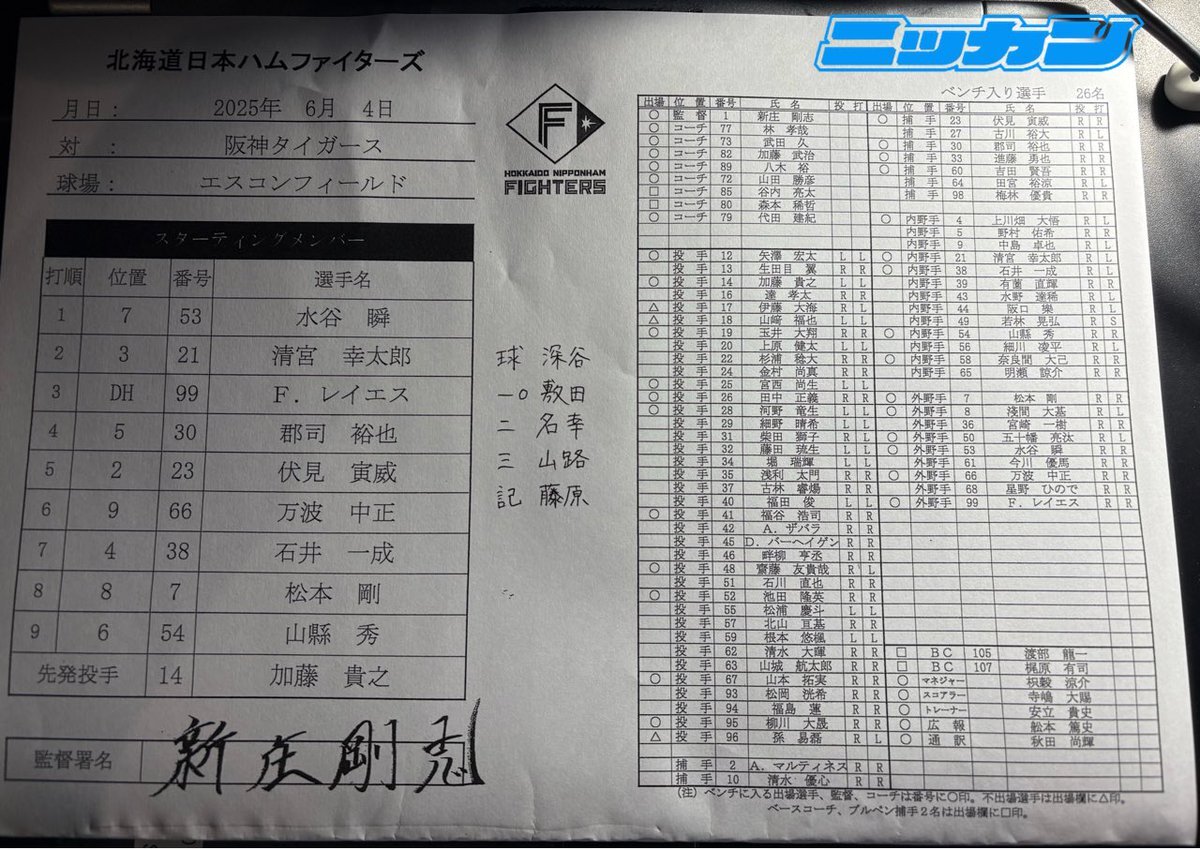 ニッカン
北海道日本ハムファイターズ
月日： 2025年 6月 4日
対 ： 阪神タイガース
球場： エスコンフィールド
HOKKAIDO NIPPONHAM
FIGHTERS
スターティングメンバー
打順 位置 番号 選手名
1 7 53 水谷 瞬
2 3 21 清宮 幸太郎
3 DH 99 F．レイエス
4 5 30 郡司 裕也
5 2 23 伏見 寅威
6 9 66 万波 中正
7 4 38 石井 一成
8 8 7 松本 剛
9 6 54 山縣 秀
先発投手 14 加藤 貴之
監督署名 新庄剛志
球 深谷
一〇 敷田
二 名幸
三 山路
記 藤原
ベンチ入り選手 26名
出場 位置 番号 氏名 投 打
〇 監督 1 新庄 剛志
〇 コーチ 77 林 孝哉
〇 コーチ 73 武田 久
〇 コーチ 82 加藤 武治
〇 コーチ 89 八木 裕
〇 コーチ 72 山田 勝彦
□ コーチ 85 谷内 亮太
□ コーチ 80 森本 稀哲
〇 コーチ 79 代田 建紀
〇 投手 12 矢澤 宏太 L L
投手 13 生田目 翼 R R
〇 投手 14 加藤 貴之 L L
投手 16 達 孝太 R R
△ 投手 17 伊藤 大海 R L
△ 投手 18 山﨑 福也 L L
〇 投手 19 玉井 大翔 R R
投手 20 上原 健太 L L
投手 22 杉浦 稔大 R R
投手 24 金村 尚真 R R
〇 投手 25 宮西 尚生 L L
〇 投手 26 田中 正義 R R
〇 投手 28 河野 竜生 L L
投手 29 細野 晴希 L L
投手 31 柴田 獅子 R L
投手 32 藤田 琉生 L L
投手 34 堀 瑞輝 L L
投手 35 浅利 太門 R R
投手 37 古林 睿煬 R R
投手 40 福田 俊 L L
〇 投手 41 福谷 浩司 R R
投手 42 A．ザバラ R R
投手 45 D．バーヘイゲン R R
投手 46 畔柳 亨丞 R R
〇 投手 48 齋藤 友貴哉 R L
投手 51 石川 直也 R R
〇 投手 52 池田 隆英 R R
投手 55 松浦 慶斗 L L
投手 57 北山 亘基 R R
投手 59 根本 悠楓 L L
投手 62 清水 大暉 R R
投手 63 山城 航太郎 R R
〇 投手 67 山本 拓実 R R
投手 93 松岡 洸希 R R
投手 94 福島 蓮 R R
〇 投手 95 柳川 大晟 R R
△ 投手 96 孫 易磊 R L
捕手 2 A．マルティネス R R
捕手 10 清水 優心 R R
出場 位置 番号 氏名 投 打
〇 捕手 23 伏見 寅威 R R
捕手 27 古川 裕大 R L
〇 捕手 30 郡司 裕也 R R
〇 捕手 33 進藤 勇也 R R
〇 捕手 60 吉田 賢吾 R R
捕手 64 田宮 裕涼 R L
捕手 98 梅林 優貴 R R
〇 内野手 4 上川畑 大悟 R L
内野手 5 野村 佑希 R R
内野手 9 中島 卓也 R L
〇 内野手 21 清宮 幸太郎 R L
〇 内野手 38 石井 一成 R L
内野手 39 有薗 直輝 R R
内野手 43 水野 達稀 R L
内野手 44 阪口 樂 R L
内野手 49 若林 晃弘 R S
〇 内野手 54 山縣 秀 R R
内野手 56 細川 凌平 R L
〇 内野手 58 奈良間 大己 R R
内野手 65 明瀬 諒介 R R
〇 外野手 7 松本 剛 R R
〇 外野手 8 淺間 大基 R L
外野手 36 宮崎 一樹 R R
〇 外野手 50 五十幡 亮汰 R L
〇 外野手 53 水谷 瞬 R R
外野手 61 今川 優馬 R R
〇 外野手 66 万波 中正 R R
外野手 68 星野 ひので R R
〇 外野手 99 F．レイエス R R
□ BC 105 渡部 龍一
□ BC 107 梶原 有司
〇 マネジャー 枳穀 涼介
〇 スコアラー 寺嶋 大賜
〇 トレーナー 安立 貴史
〇 広報 舩本 篤史
〇 通訳 秋田 尚輝
（注）ベンチに入る出場選手、監督、コーチは番号に〇印。不出場選手は出場欄に△印。
ベースコーチ、ブルペン捕手２名は出場欄に□印。